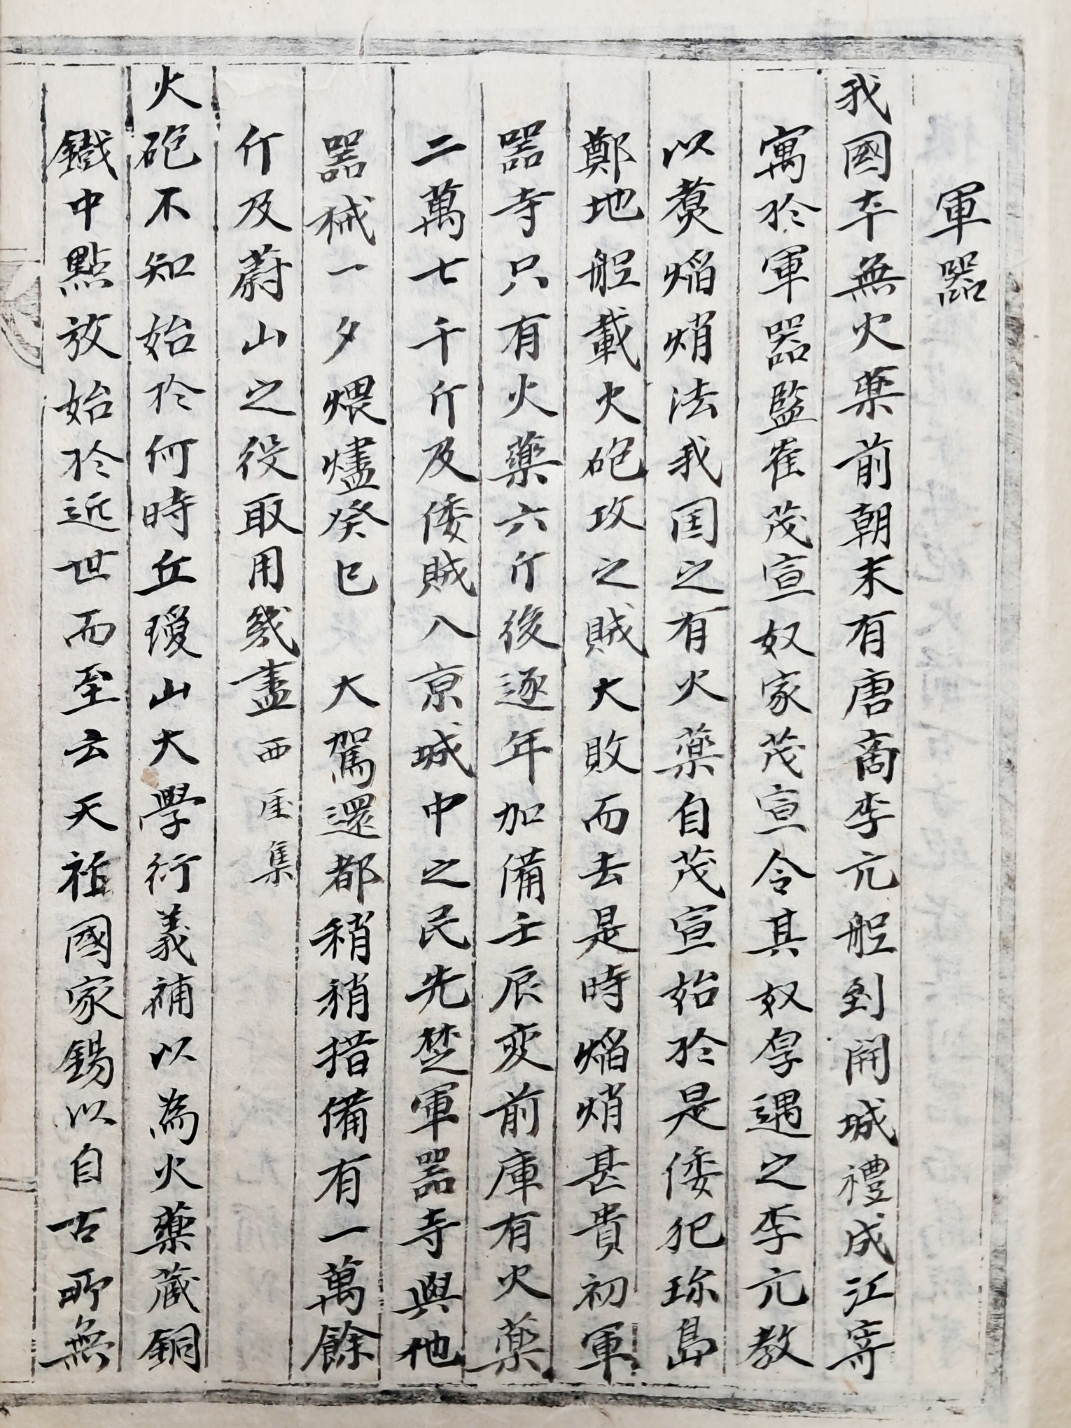 軍器
我國本無火藥前朝末有唐商李元舡到開城禮成江寄
寓於軍器監崔茂宣奴家茂宣令其奴厚遇之李元教
以煑焰焇法我国之有火藥自茂宣始於是倭犯珎島
鄭地舡載火砲攻之賊大敗而去是時焰焇甚貴初軍
器寺只有火藥六斤後逐年加備壬辰変前庫有火藥
二萬七千斤及倭賊入京城中之民先焚軍器寺與他
器械一夕煨燼癸巳 大駕還都稍稍措備有一萬餘
斤及蔚山之役取用幾盡 西厓集
火砲不知始於何時丘瓊山大學衍義補以為火藥藏銅
鐵中點放始於近世而至云天祚國家錫以自古所無